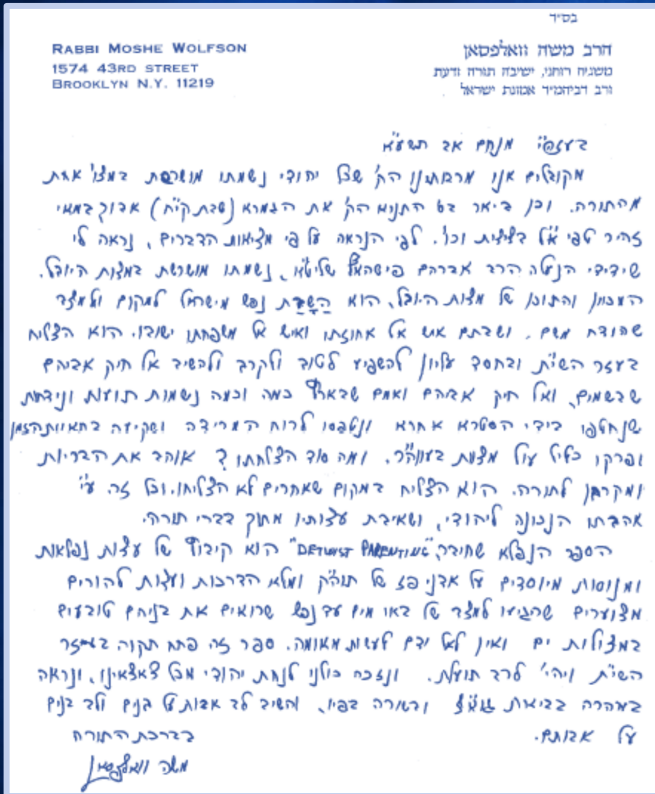 בס״ד
RABBI MOSHE WOLFSON
1574 43RD STREET
BROOKLYN N.Y. 11219
הרב משה וואלפסאן
משגיח רוחני, ישיבה תורה ודעת
ורב דביהמ״ד אמונת ישראל
בעזהי״ מנחם אב תשע״א
מקובלים אנו מרבותינו הק' שכל יהודי נשמתו מושרשת במצו' אחת
מהתורה. וכן ביאר בס' התניא הק' את הגמרא (שבת קי״ח) אבוך במאי
זהיר טפי א״ל בציצית וכו'. לפי הנראה על פי מציאות הדברים, נראה לי
שידידי הנעלה הרב אברהם פישהאל שליט״א, נשמתו מושרשת במצות היובל.
המכוון והתוכן של מצות היובל, הוא הֲשָׁבַת נפש מישראל למקום ולמצב
שהודח משם, ושבתם איש אל אחוזתו ואיש אל משפחתו ישובו. הוא הצליח
בעזר השי״ת ובחסד עליון להשפיע לטוב ולקרב ולהשיב אל חיק אביהם
שבשמים, ואל חיק אביהם ואמם שבארץ כמה וכמה נשמות תועות ונידחות
שנחטפו בידי הסטרא אחרא ונתפסו לרוח המרידה ושקיעה בתאיות הזמן
ופרקו כליל עול מצות בעוה״ר. ומה סוד הצלחתו? אוהב את הבריות
ומקרבן לתורה. הוא הצליח במקום שאחרים לא הצליחו. וכל זה, ע״י
אהבתו הנכונה ליהודי, ושאיבת עצותיו מתוך דברי תורה.
הספר הנפלא שחיבר, "DETWIST PARENTING" הוא קיבוץ של עצות נפלאות
ומנוסות מיוסדים על אדני פז של תוה״ק ומלא הדרכות ועצות להורים
מצוערים שהגיעו למצב של באו מים עד נפש שרואים את בניהם טובעים
במצולות ים ואין לאל ידם לעשות מאומה. ספר זה פתח תקוה בעזר
השי״ת ויהי' לרב תועלת. ונזכה כולנו לנחת יהודי מכל צאצאינו, ונראה
במהרה בביאת גוא״צ ובשורה בפיו, והשיב לב אבות על בנים ולב בנים
על אבותם.
בברכת התורה
משה וואלפסאן